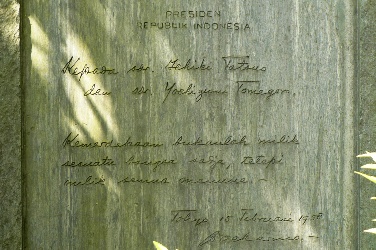 PRESIDEN
REPUBLIK INDONESIA
Kepada sdr. Ichiki Tatsuo
dan sdr. Yoshizumi Tomegoro.
Kemerdekaan bukanlah milik
sesuatu bangsa saja, tetapi
milik semua manusia. –
Tokyo 15 Februari 1958
Soekarno. –